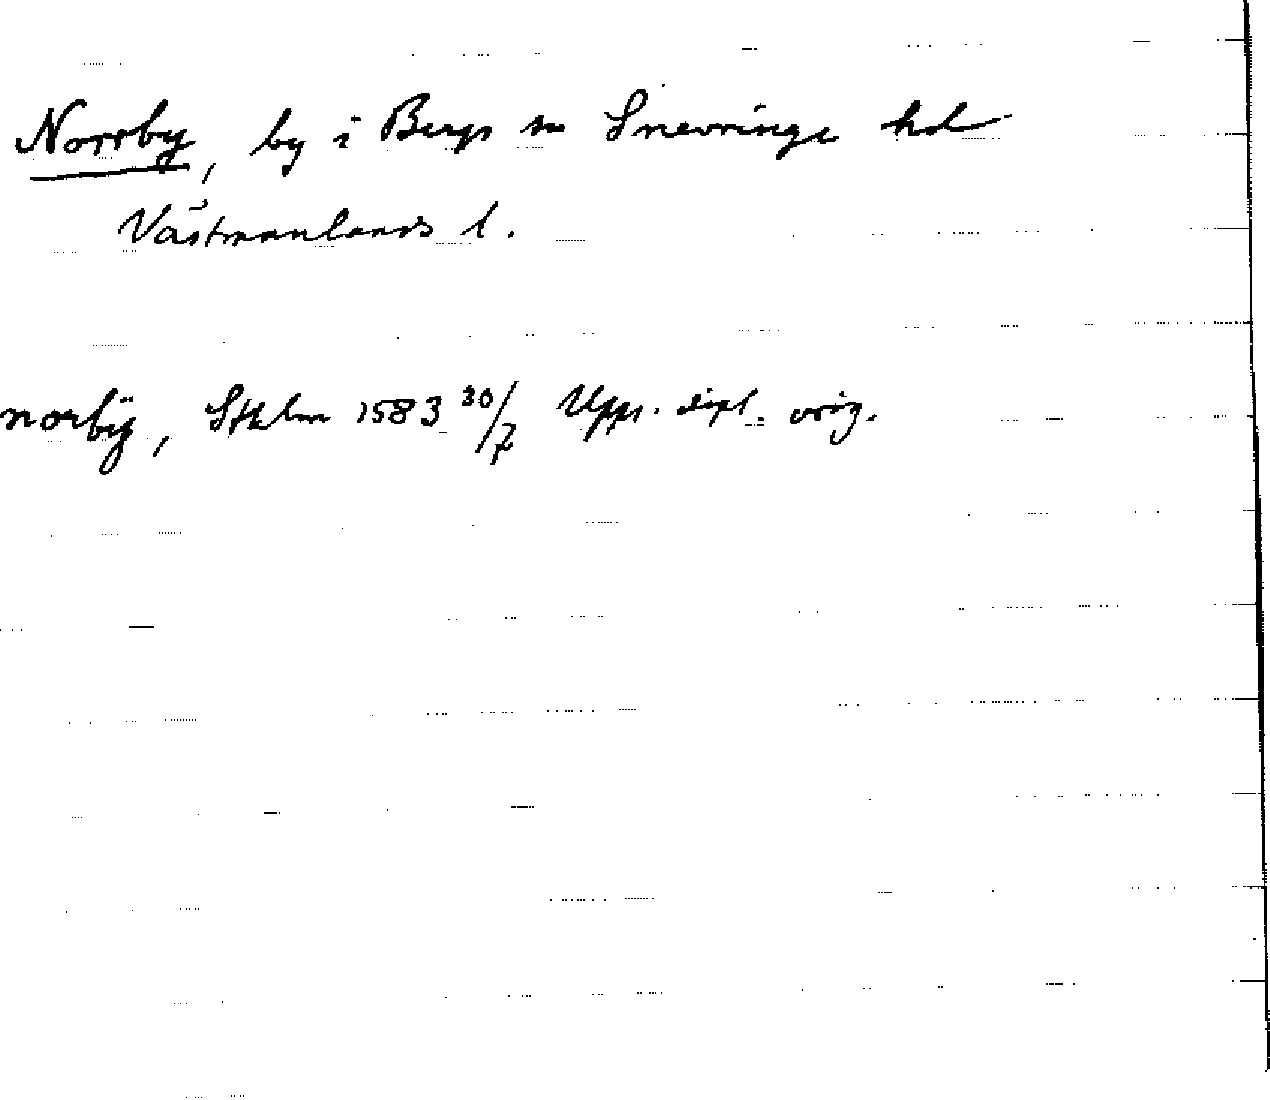 Norrby, by i Bergs sn Snevringe hd
Västmanlands l.
norbÿ, Sthlm 1583 30/7 Upps. dipl. orig.